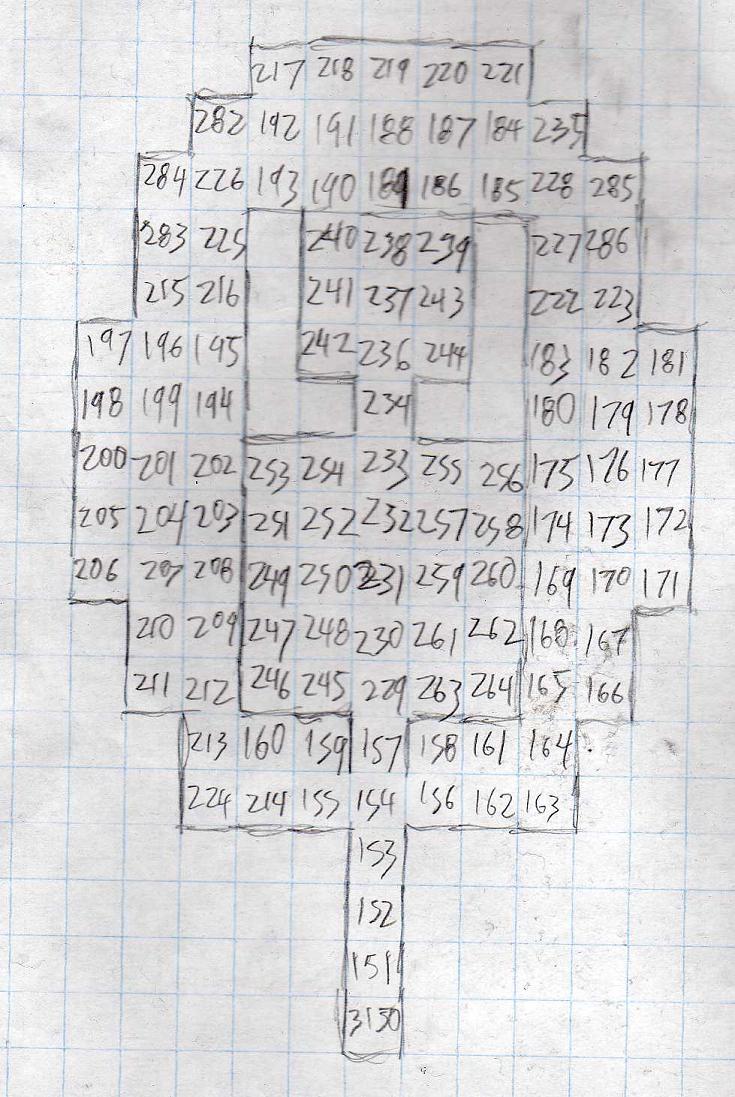 217 218 219 220 221
282 192 191 188 187 184 235
284 226 193 190 189 186 185 228 285
283 225 240 238 239 227 286
215 216 241 237 243 222 223
197 196 195 242 236 244 183 182 181
198 199 194 234 180 179 178
200 201 202 253 254 233 255 256 175 176 177
205 204 203 251 252 232 257 258 174 173 172
206 207 208 249 250 231 259 260 169 170 171
210 209 247 248 230 261 262 168 167
211 212 246 245 229 263 264 165 166
213 160 159 157 158 161 164
224 214 155 154 156 162 163
153
152
151
3150